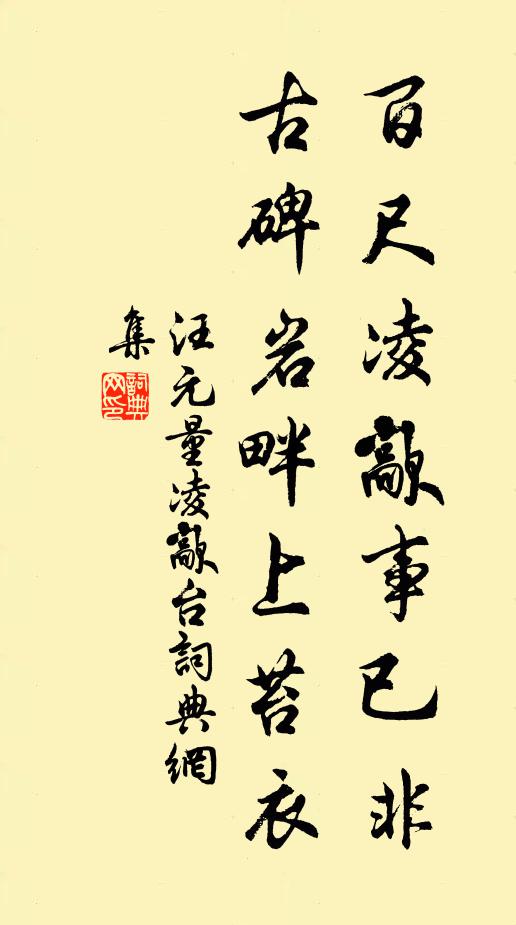 百尺凌歊事已非
古碑岩畔上苔衣
汪元量凌歊台詞典網
集
詞典网印